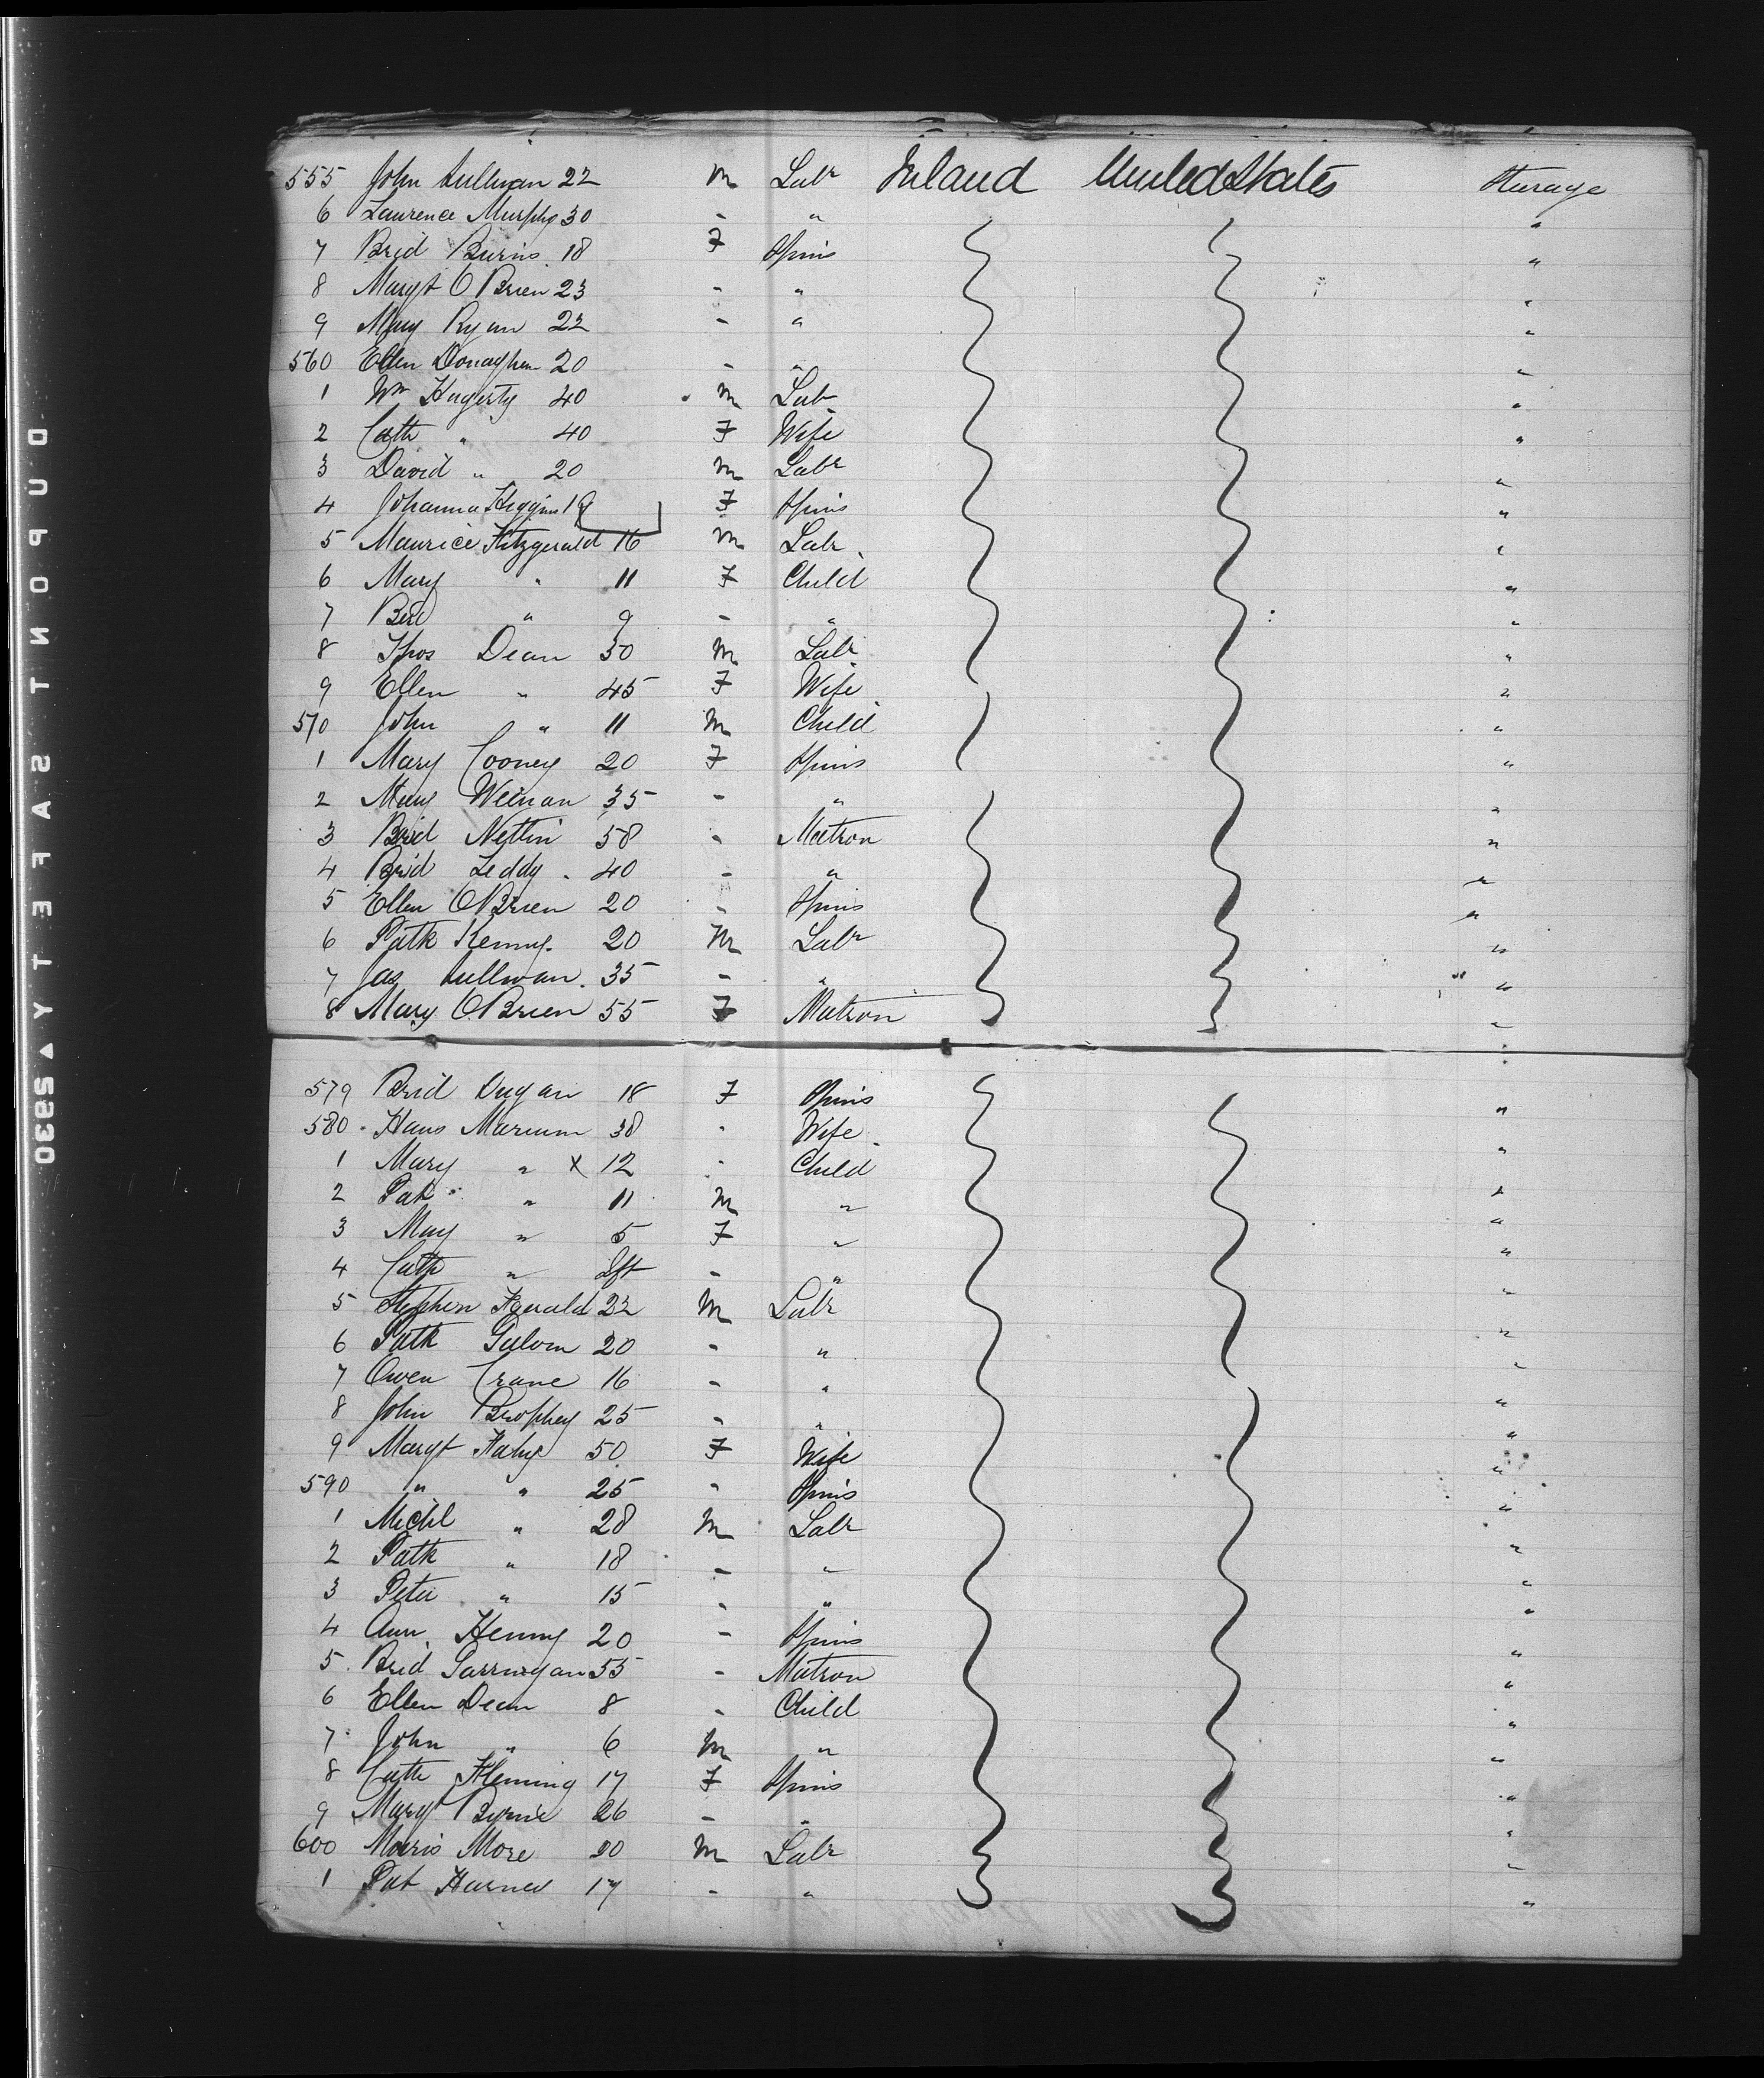 555 John Sullivan 22 m Labr Ireland United States Steerage
6 Laurence Murphy 30 - "  "
7 Brid Burns 18 F Spins "
8 Margt O'Brien 23 - " "
9 Mary Ryan 22 - " "
560 Ellen Donaghue 20 - " "
1 Wm Hagerty 40 m Lab "
2 Cath " 40 F Wife "
3 David " 20 m Labr "
4 Johanna Higgins 19 F Spins "
5 Maurice Fitzgerald 16 m Labr "
6 Mary " 11 F Child "
7 Brid " 9 - " "
8 Thos Dean 50 m Labr "
9 Ellen " 45 F Wife "
570 John " 11 m Child "
1 Mary Cooney 20 F Spins "
2 Mary 35 - " "
3 Brid 58 - Matron "
4 Brid Leddy 40 - " "
5 Ellen O'Brien 20 - Spins "
6 Patk Kenny 20 m Labr "
7 Jas Sullivan 35 - " "
8 Mary O'Brien 55 F Matron "
579 Brid Dugan 18 F Spins "
580 38 - Wife "
1 Mary " x 12 - Child "
2 Pat " 11 m " "
3 May " 5 F " "
4 Cath " Ift - " "
5 Stephen 22 m Labr "
6 Patk Galvin 20 - " "
7 Owen Crane 16 - " "
8 John Brophey 25 - " "
9 Margt Fahy 50 F Wife "
590 " " 25 - Spins "
1 Michl " 28 m Labr "
2 Patk " 18 - " "
3 Peter " 15 - " "
4 Ann Henny 20 - Spins "
5 Brid 55 - Matron "
6 Ellen Dean 8 - Child "
7 John " 6 m " "
8 Cath Fleming 17 F Spins "
9 Margt Byrne 26 - " "
600 Morris More 20 m Labr "
1 Pat 17 - " "
DUPONT SAFETY ▲ 25930